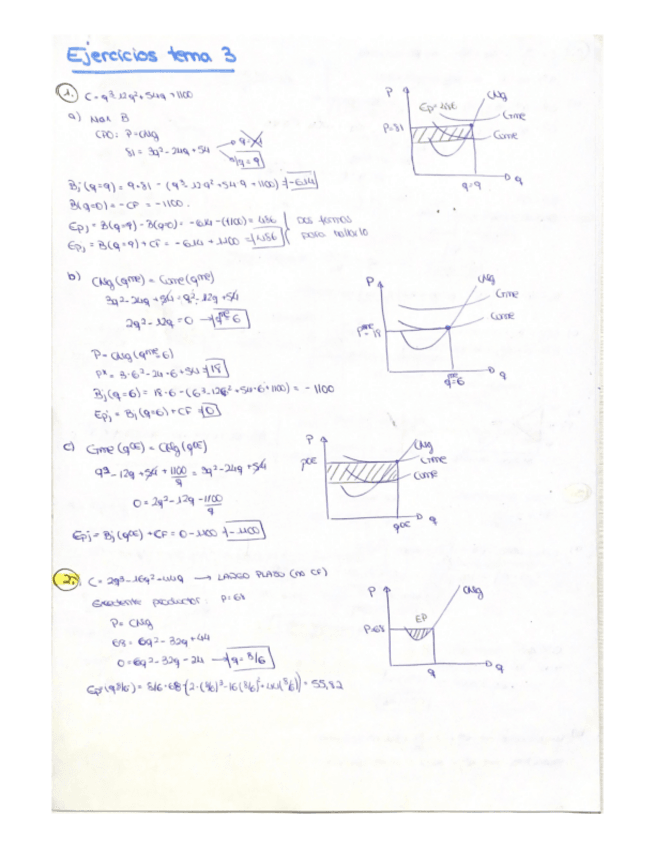 Ejercicios tema 3
1. C = q³-12q²+54q+1100
a) Max B
CPO: P=CMg
81 = 3q²-24q+54
q=9
Bj(q=9) = 9·81 - (q³-12q²+54·9+1100) = -614
B(q=0) = -CF = -1100.
EPj = B(q=9) - B(q=0) = -614-(-1100) = 486
EPj = B(q=9) + CF = -614 + 1100 = 486
Dos formas
para hallarlo
P
EP=486
CMg
Cme
P=81
Cvme
q=9
q
b) CMg(qme) = Cvme(qme)
3q²-24q+54 = q²-12q+54
2q²-12q=0 → qme=6
P=CMg(qme,6)
P* = 3·6²-24·6+54 = 18
Bj(q=6) = 18·6-(6³-12·6²+54·6+1100) = -1100
EPj = Bj(q=6) + CF = 0
P
CMg
Cme
Cvme
P=18
q=6
q
c) Cme(qoe) = CMg(qoe)
q²-12q+54+1100/q = 3q²-24q+54
0=2q²-12q-1100/q
EPj = Bj(qoe) + CF = 0-1100 = -1100
P
CMg
Cme
Cvme
poe
qoe
q
2. C = 2q³-16q²-44q → LARGO PLAZO (no CF)
Excedente productor: P=68
P=CMg
68 = 6q²-32q+44
0=6q²-32q-24 → q=8/6
P
CMg
P=68
EP
q
q